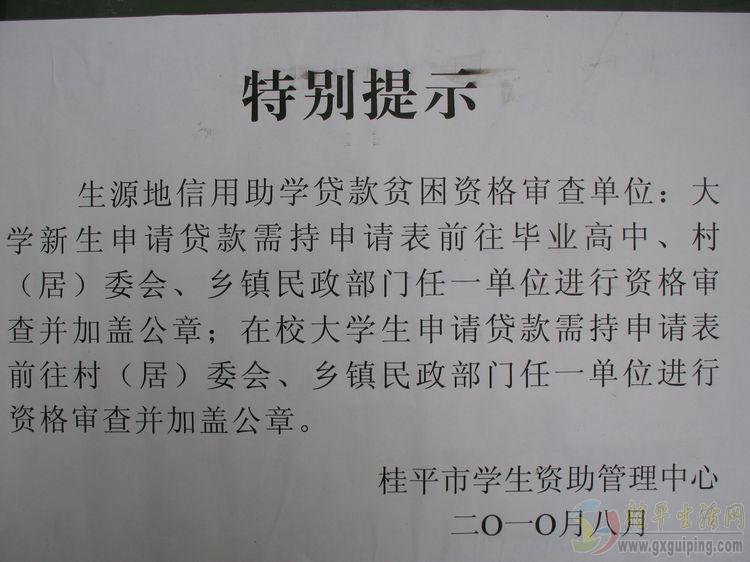 特别提示
生源地信用助学贷款贫困资格审查单位：大
学新生申请贷款需持申请表前往毕业高中、村
（居）委会、乡镇民政部门任一单位进行资格审
查并加盖公章；在校大学生申请贷款需持申请表
前往村（居）委会、乡镇民政部门任一单位进行
资格审查并加盖公章。
桂平市学生资助管理中心
二O一O月八月
桂平生活网
www.gxguiping.com